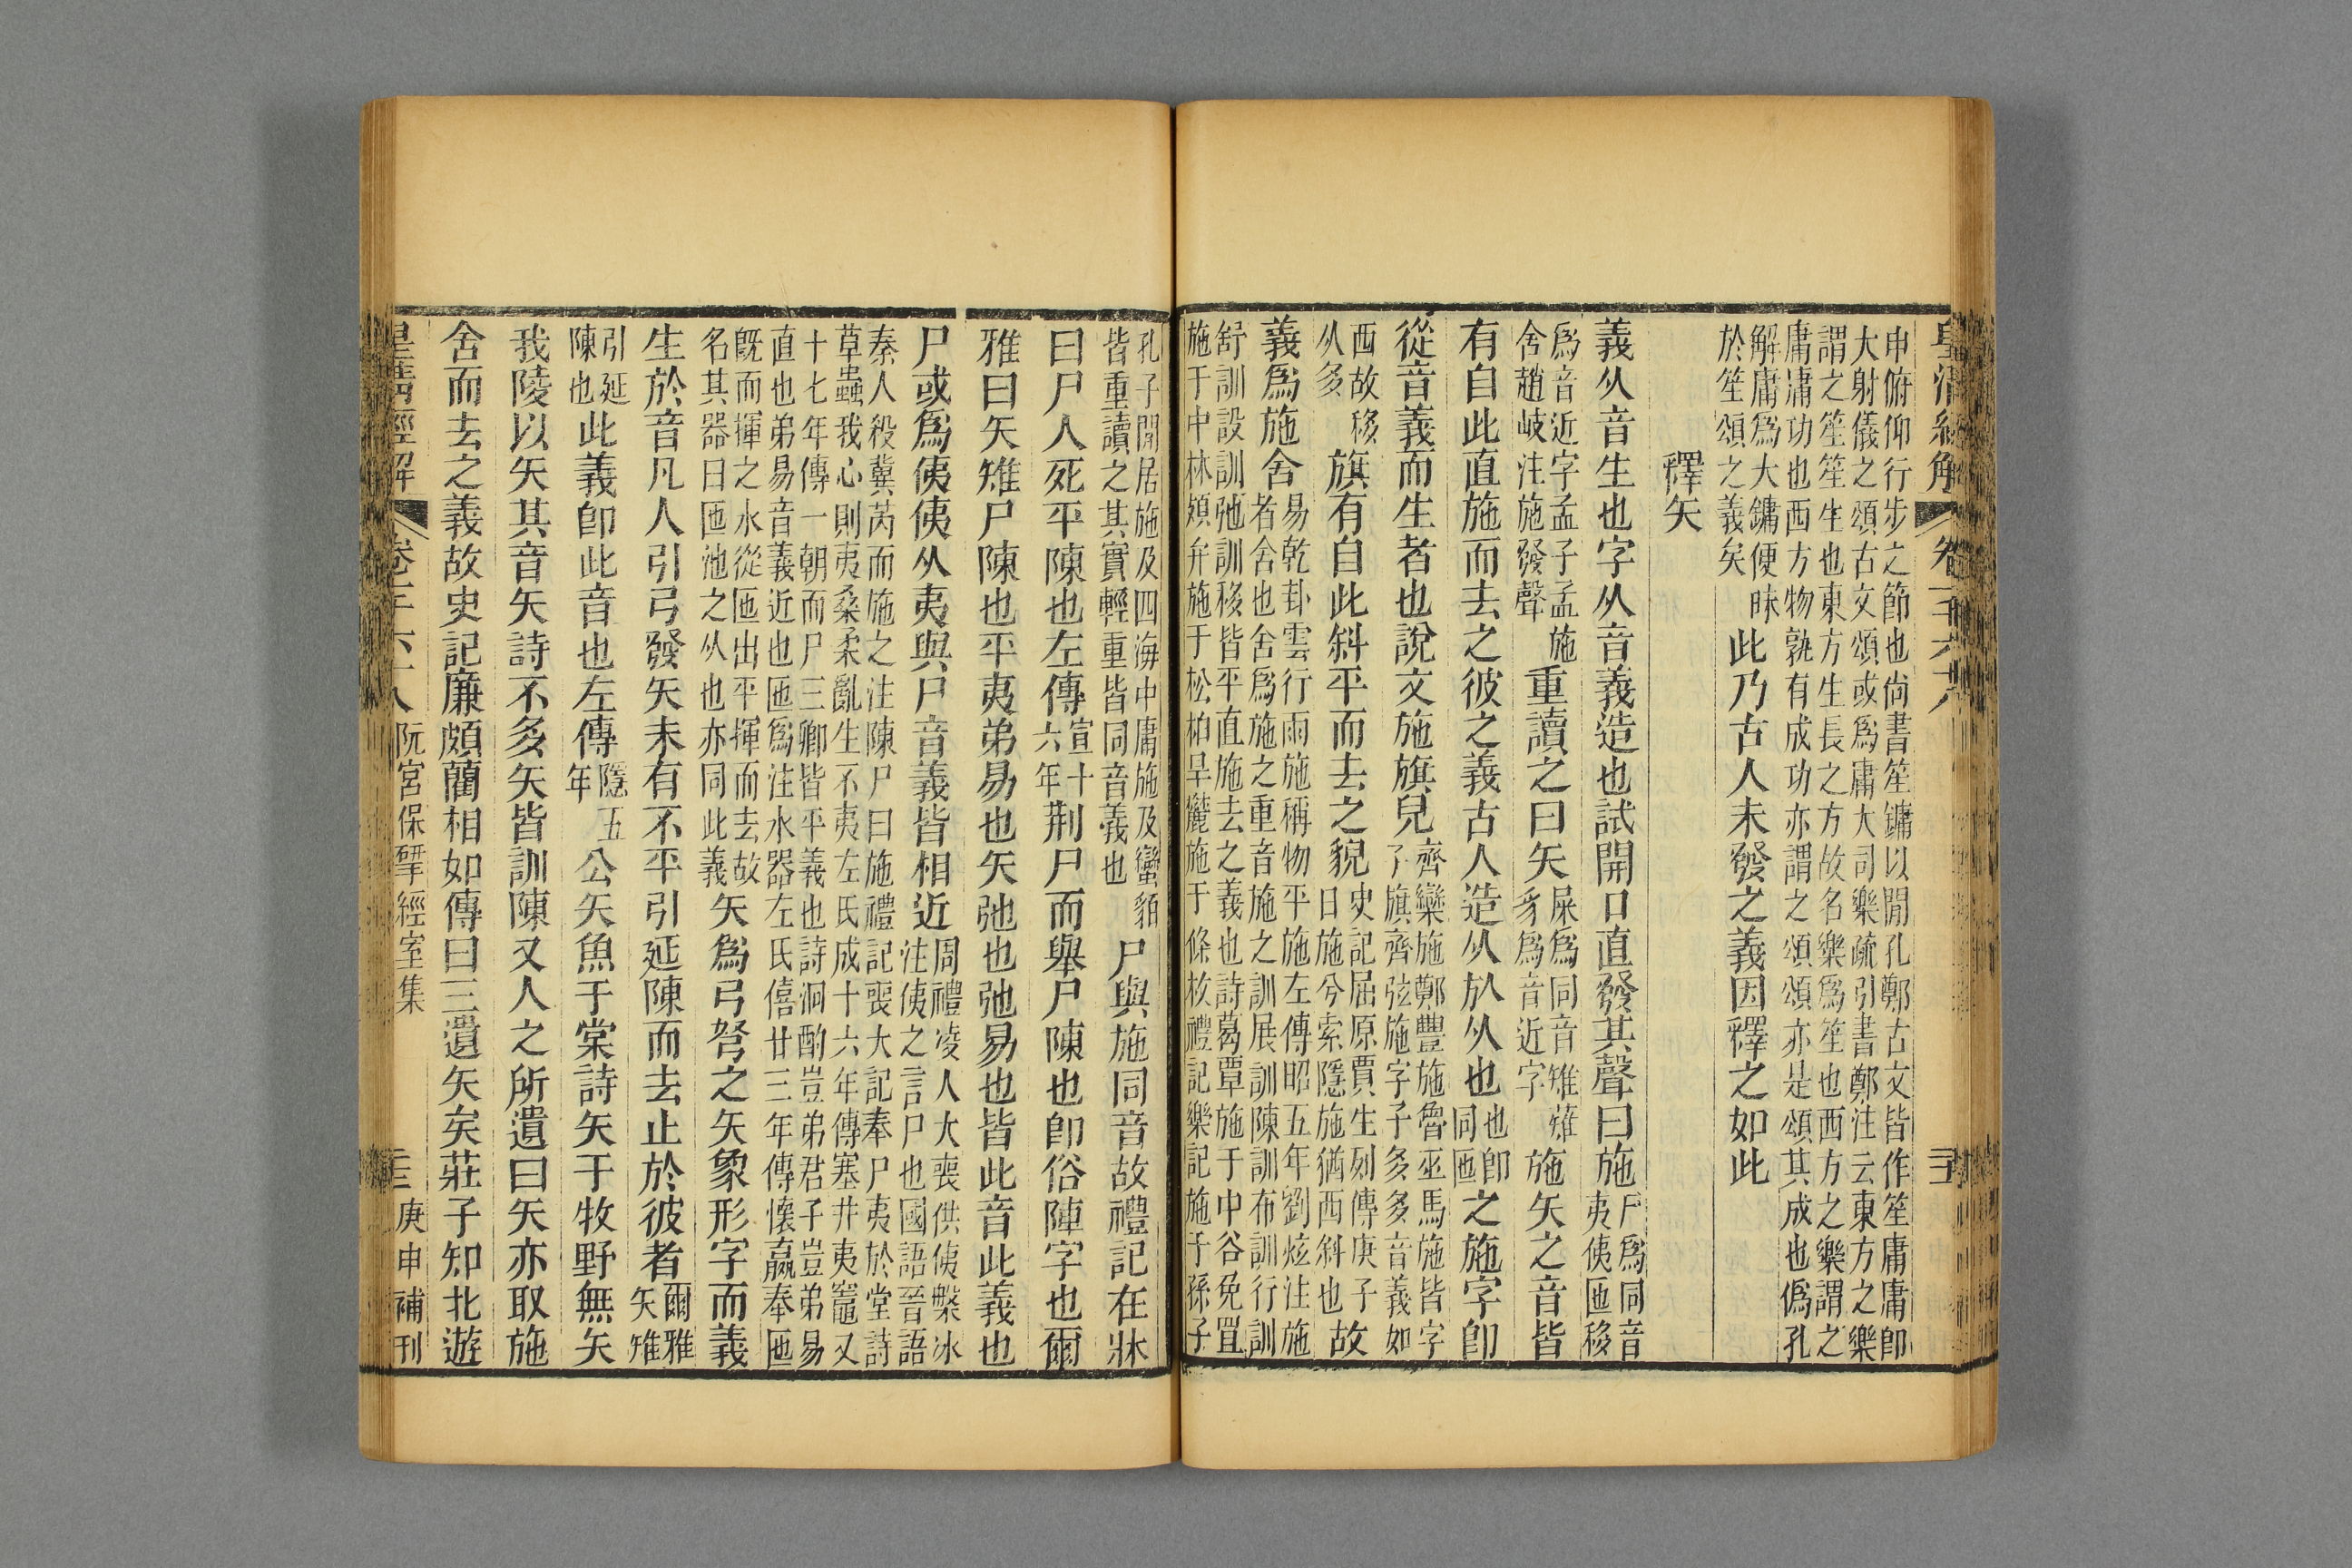 皇清經解
申俯仰行步之節也尙書笙鏞以閒孔鄭古文皆作笙庸庸卽
大射儀之頌古文頌或爲庸大司樂疏引書鄭注云東方之樂
謂之笙笙生也東方生長之方故名樂爲笙也西方之樂謂之
庸庸功也西方物孰有成功亦謂之頌頌亦是頌其成也僞孔
解庸爲大鏞便昧於笙頌之義矣此乃古人未發之義因釋之如此
釋矢
義从音生也字从音義造也試開口直發其聲曰施尸爲同音夷侇匜移
爲音近字孟子孟施舍趙岐注施發聲重讀之曰矢屎爲同音雉薙豸爲音近字施矢之音皆
有自此直施而去之彼之義古人造从㫃从也也卽同匜之施字卽
從音義而生者也說文施旗皃齊欒施鄭豐施魯巫馬施皆字子旗齊弦施字子多多音義如
西故移从多旗有自此斜平而去之貌史記屈原賈生列傳庚子日施兮索隱施猶西斜也故
義爲施舍易乾卦雲行雨施稱物平施左傳昭五年劉炫注施者舍也舍爲施之重音施之訓展訓陳訓布訓行訓
舒訓設訓弛訓移皆平直施去之義也詩葛覃施于中谷免罝施于中林頍弁施于松柏旱麓施于條枚禮記樂記施于孫子
孔子閒居施及四海中庸施及蠻貊皆重讀之其實輕重皆同音義也尸與施同音故禮記在牀
曰尸人死平陳也左傳宣十六年荆尸而舉尸陳也卽俗陣字也爾
雅曰矢雉尸陳也平夷弟易也矢弛也弛易也皆此音此義也
尸或爲侇侇从夷與尸音義皆相近周禮凌人大喪供侇槃冰注侇之言尸也國語晉語
秦人殺冀芮而施之注陳尸曰施禮記喪大記奉尸夷於堂詩草蟲我心則夷桑柔亂生不夷左氏成十六年傳塞井夷竈又
十七年傳一朝而尸三卿皆平義也詩泂酌豈弟君子豈弟易直也弟易音義近也匜爲注水器左氏僖廿三年傳懷嬴奉匜
旣而揮之水從匜出平揮而去故名其器曰匜池之从也亦同此義矢爲弓弩之矢象形字而義
生於音凡人引弓發矢未有不平引延陳而去止於彼者爾雅矢雉
引延陳也此義卽此音也左傳隱五年公矢魚于棠詩矢于牧野無矢
我陵以矢其音矢詩不多矢皆訓陳又人之所遺曰矢亦取施
舍而去之義故史記廉頗藺相如傳曰三遺矢矣莊子知北遊
皇淸經解 卷一千六十八 阮宮保揅經室集 庚申補刊